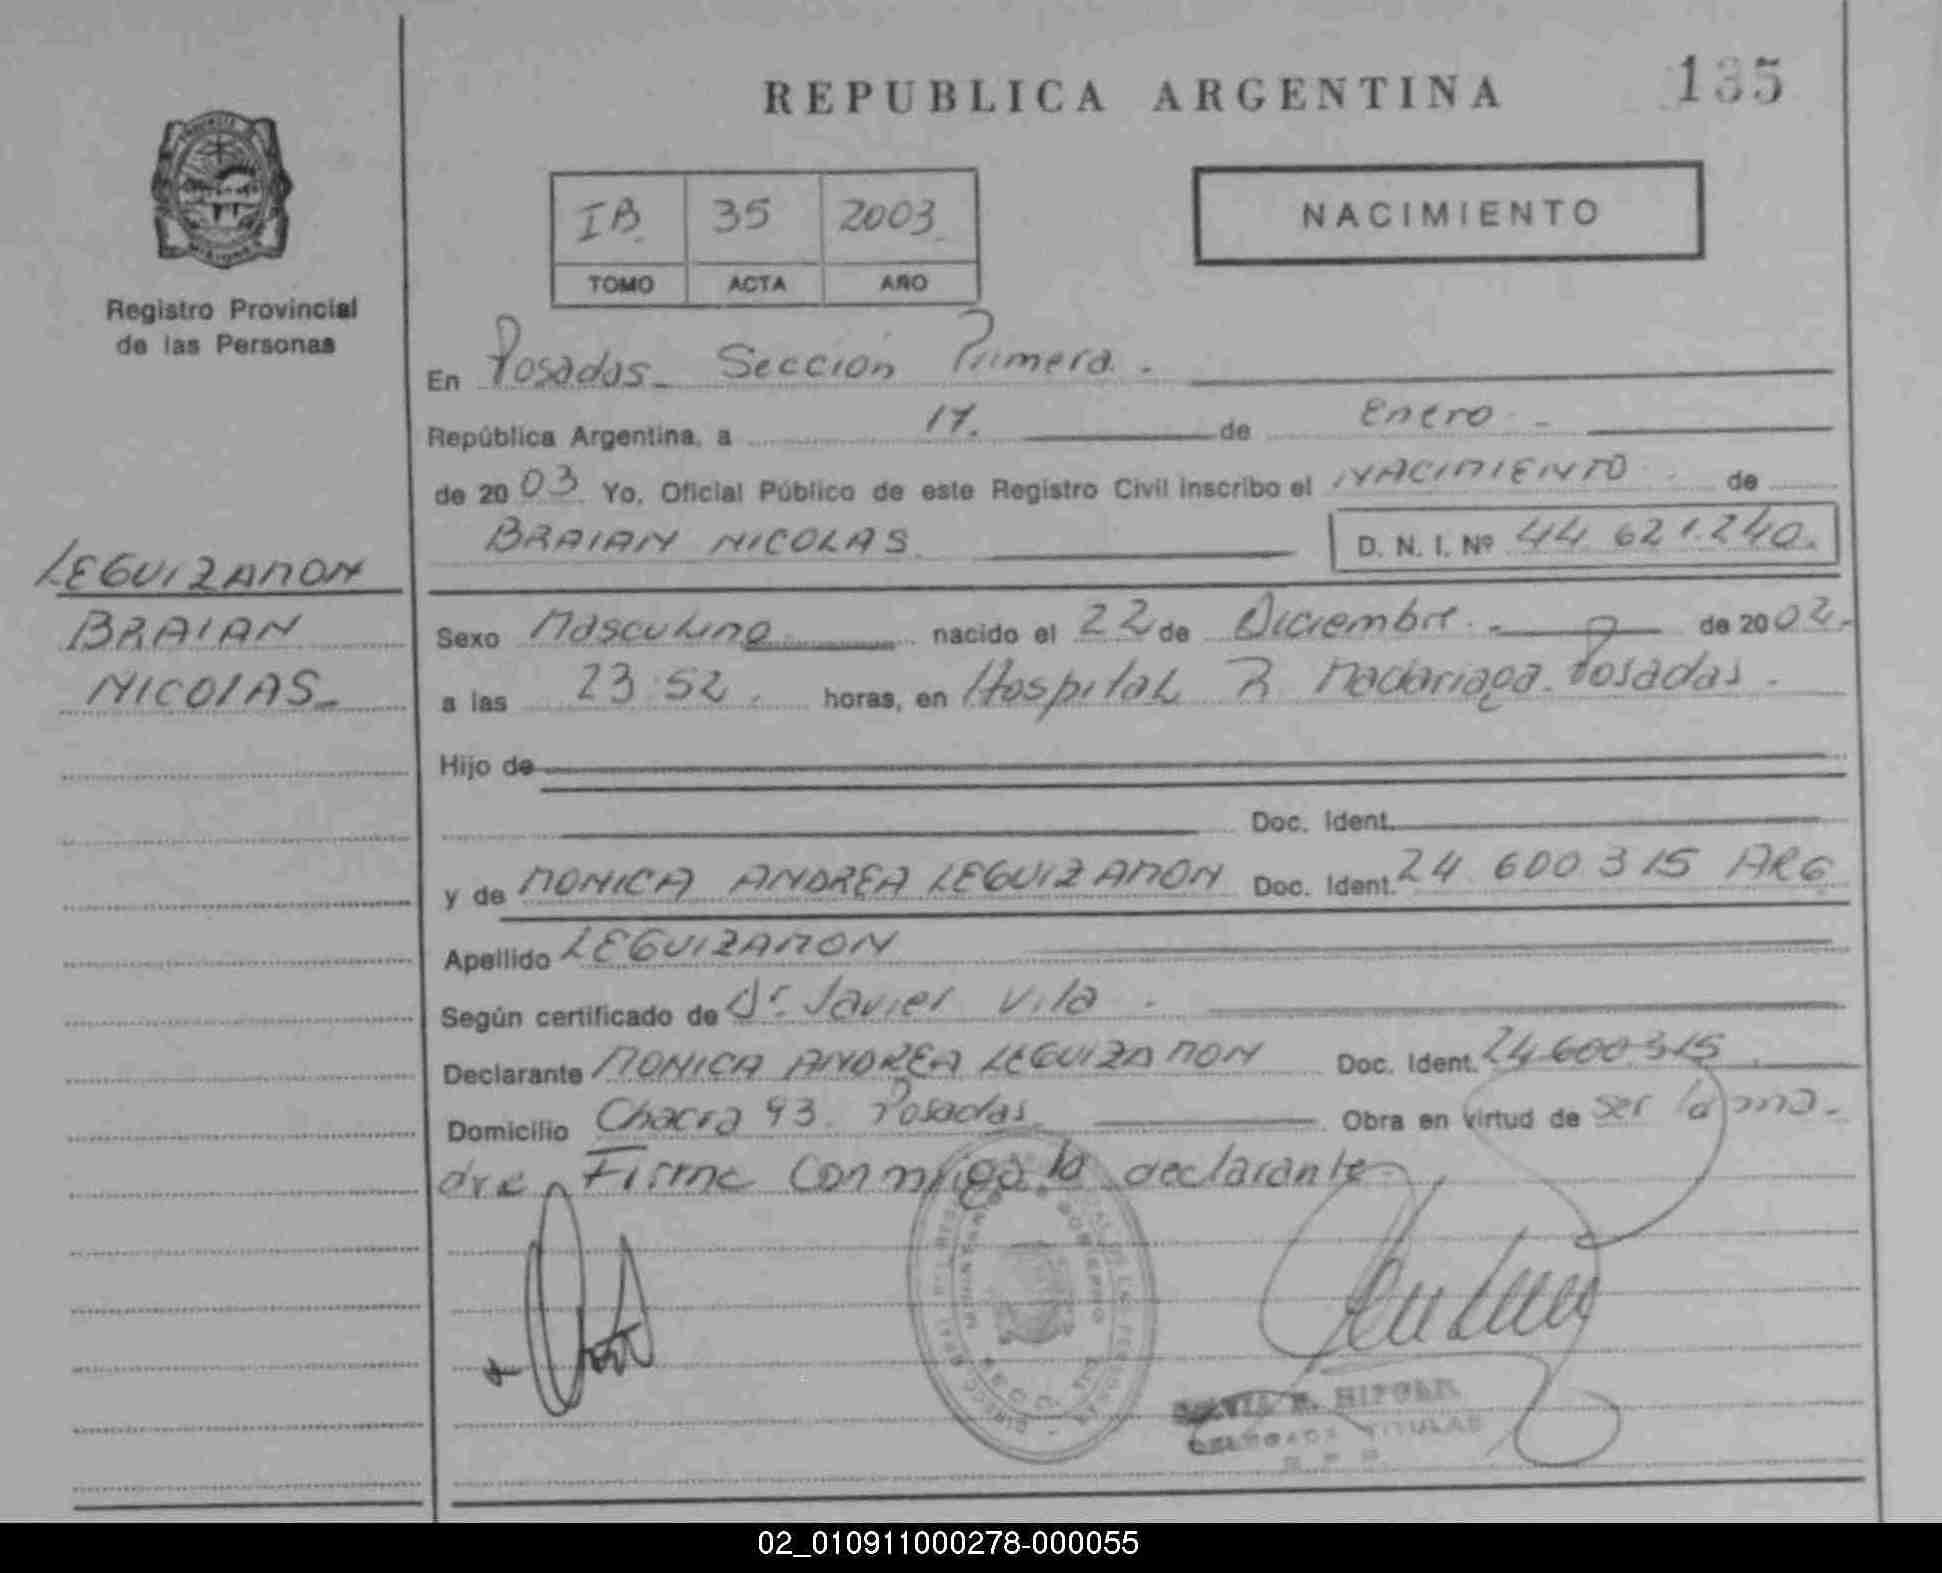 REPUBLICA ARGENTINA
135
IB. 35 2003.
TOMO ACTA AÑO
NACIMIENTO
Registro Provincial
de las Personas
En Posadas - Sección Primera.
República Argentina, a 17. de Enero -
de 2003 Yo, Oficial Público de este Registro Civil inscribo el NACIMIENTO. de
BRAIAN NICOLAS D. N. I. Nº 44.621.240.
LEGUIZAMON
BRAIAN
NICOLAS -
Sexo Masculino nacido el 22 de Diciembre. - de 2002.-
a las 23:52. horas, en Hospital R Madariaga. Posadas.
Hijo de
Doc. Ident.
y de MONICA ANDREA LEGUIZAMON Doc. Ident. 24.600.315 ARG
Apellido LEGUIZAMON
Según certificado de Dr Javier Vila.
Declarante MONICA ANDREA LEGUIZAMON Doc. Ident. 24.600.315.
Domicilio Chacra 93. Posadas Obra en virtud de ser la ma-
dre Firma conmigo la declarante
MINISTERIO GOBIERNO
HIPOLER
DELEGADA TITULAR
02_010911000278-000055